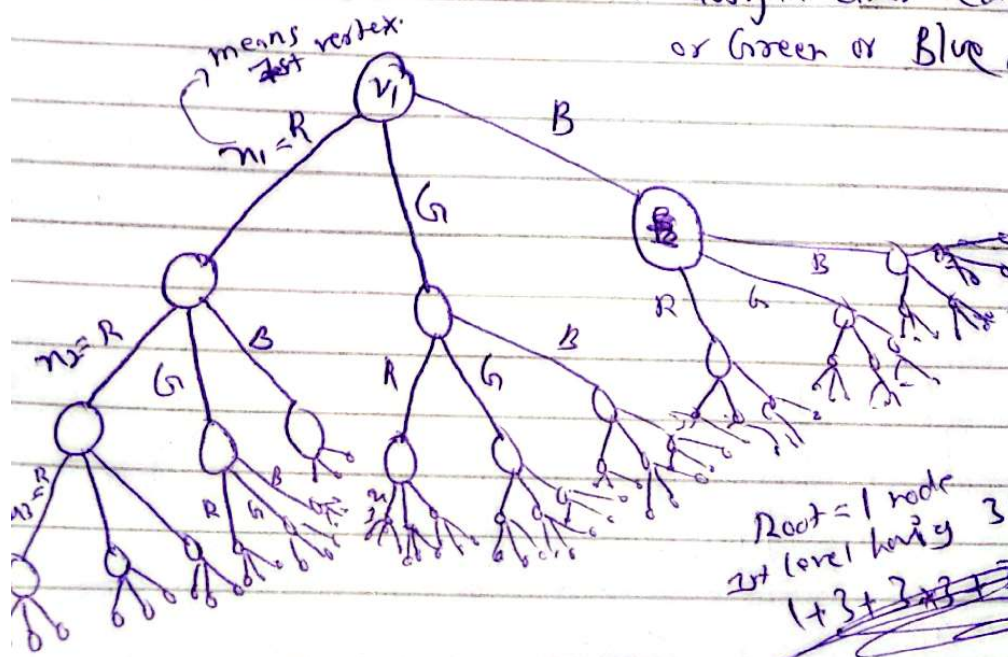 or Green or Blue
means
vertex.
V1
n1=R
G
B
n2=R
G
B
R
G
B
R
G
B
n3=R
R
G
B
Root = 1 node
1st level having 3
1+3+3*3+